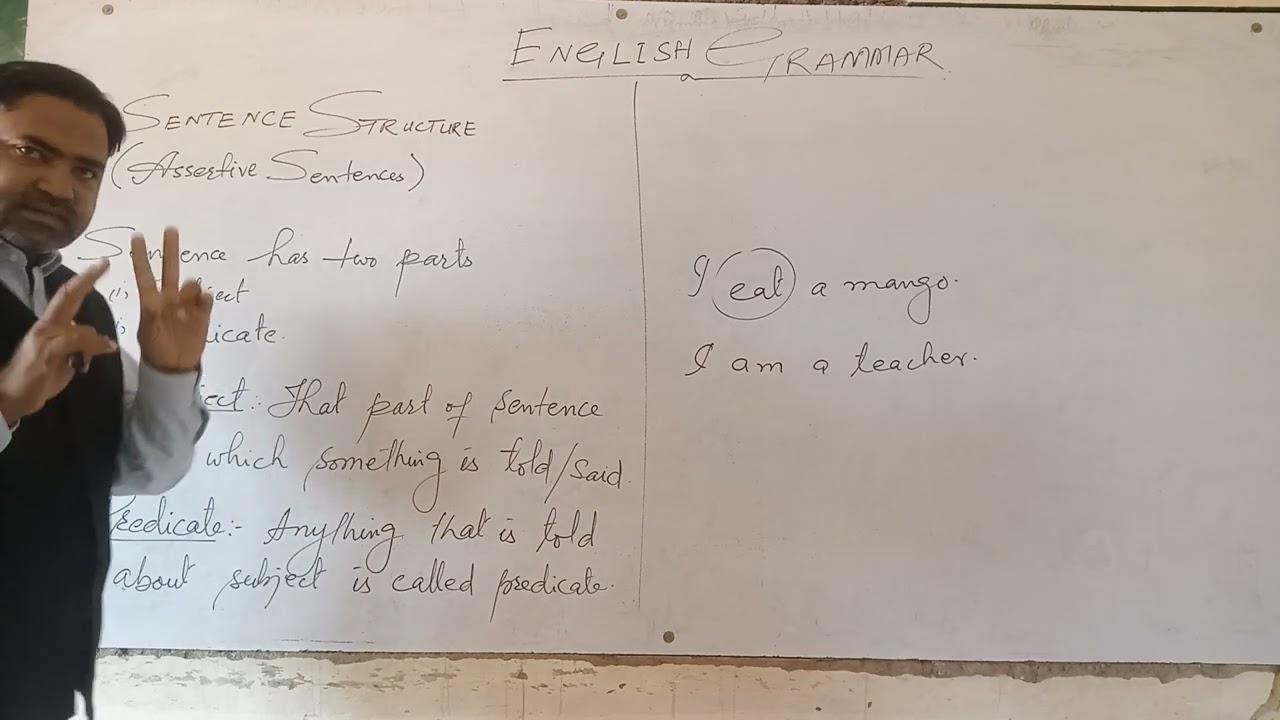 ENGLISH GRAMMAR
SENTENCE STRUCTURE
(Assertive Sentences)
Sentence has two parts
(i)
icate.
ect:- That part of sentence
which something is told/said.
Predicate:- Anything that is told
about subject is called predicate.
I eat a mango.
I am a teacher.